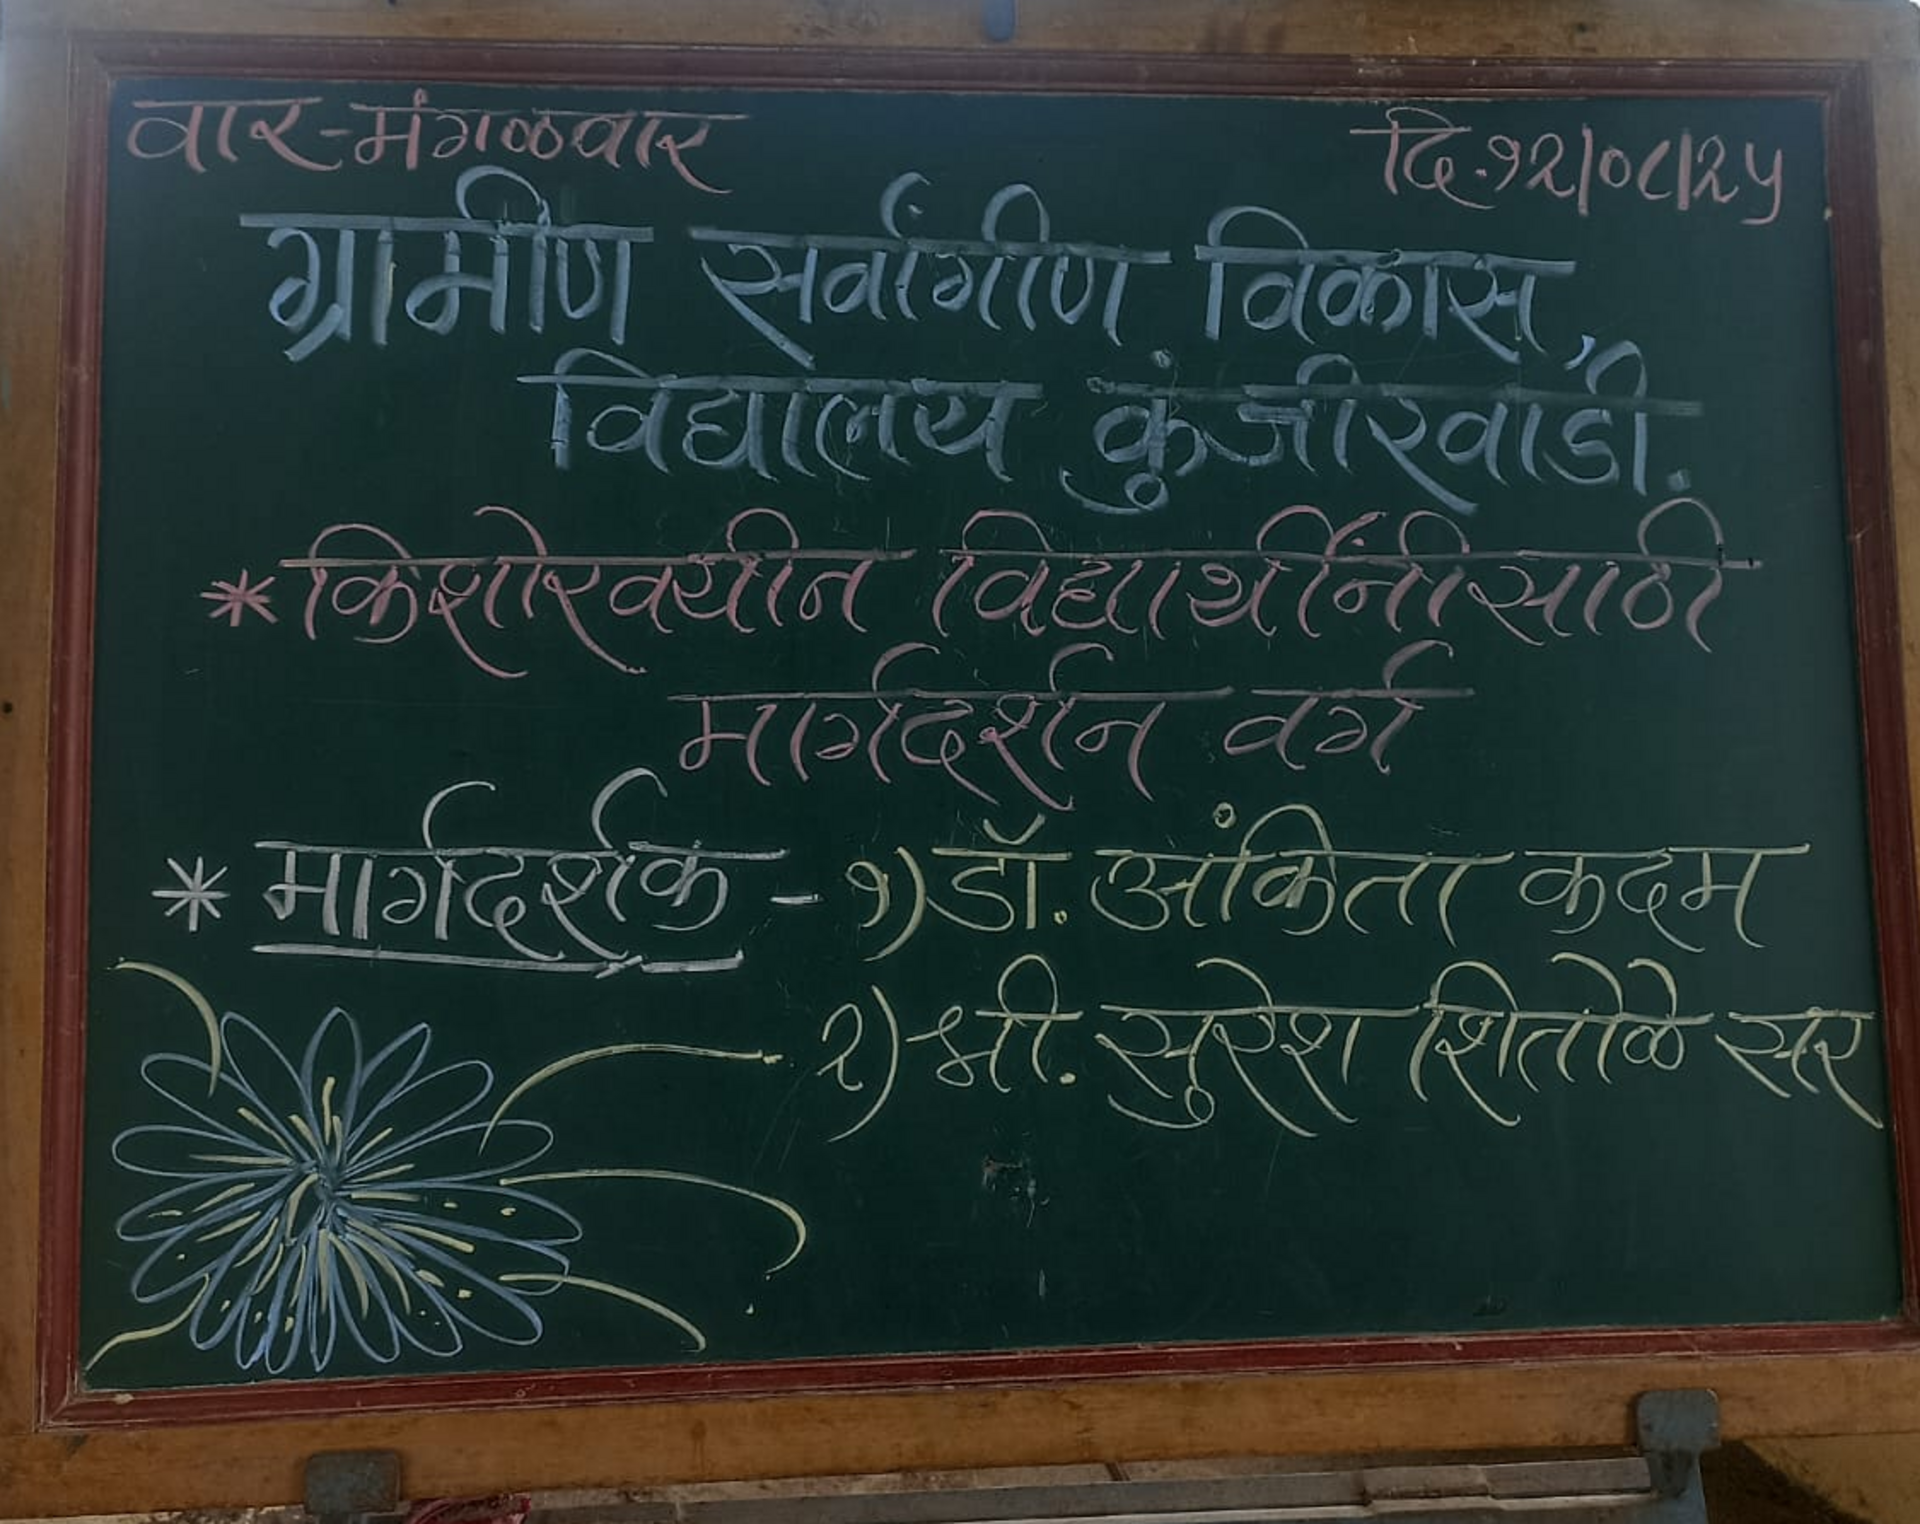 वार-मंगळवार
दि.१२/०८/२५
ग्रामीण सर्वांगीण विकास,
विद्यालय कुंजीरवाडी.
* किशोरवयीन विद्यार्थींनीसाठी
मार्गदर्शन वर्ग
* मार्गदर्शक - १) डॉ. अंकिता कदम
२) श्री. सुरेश शितोळे सर